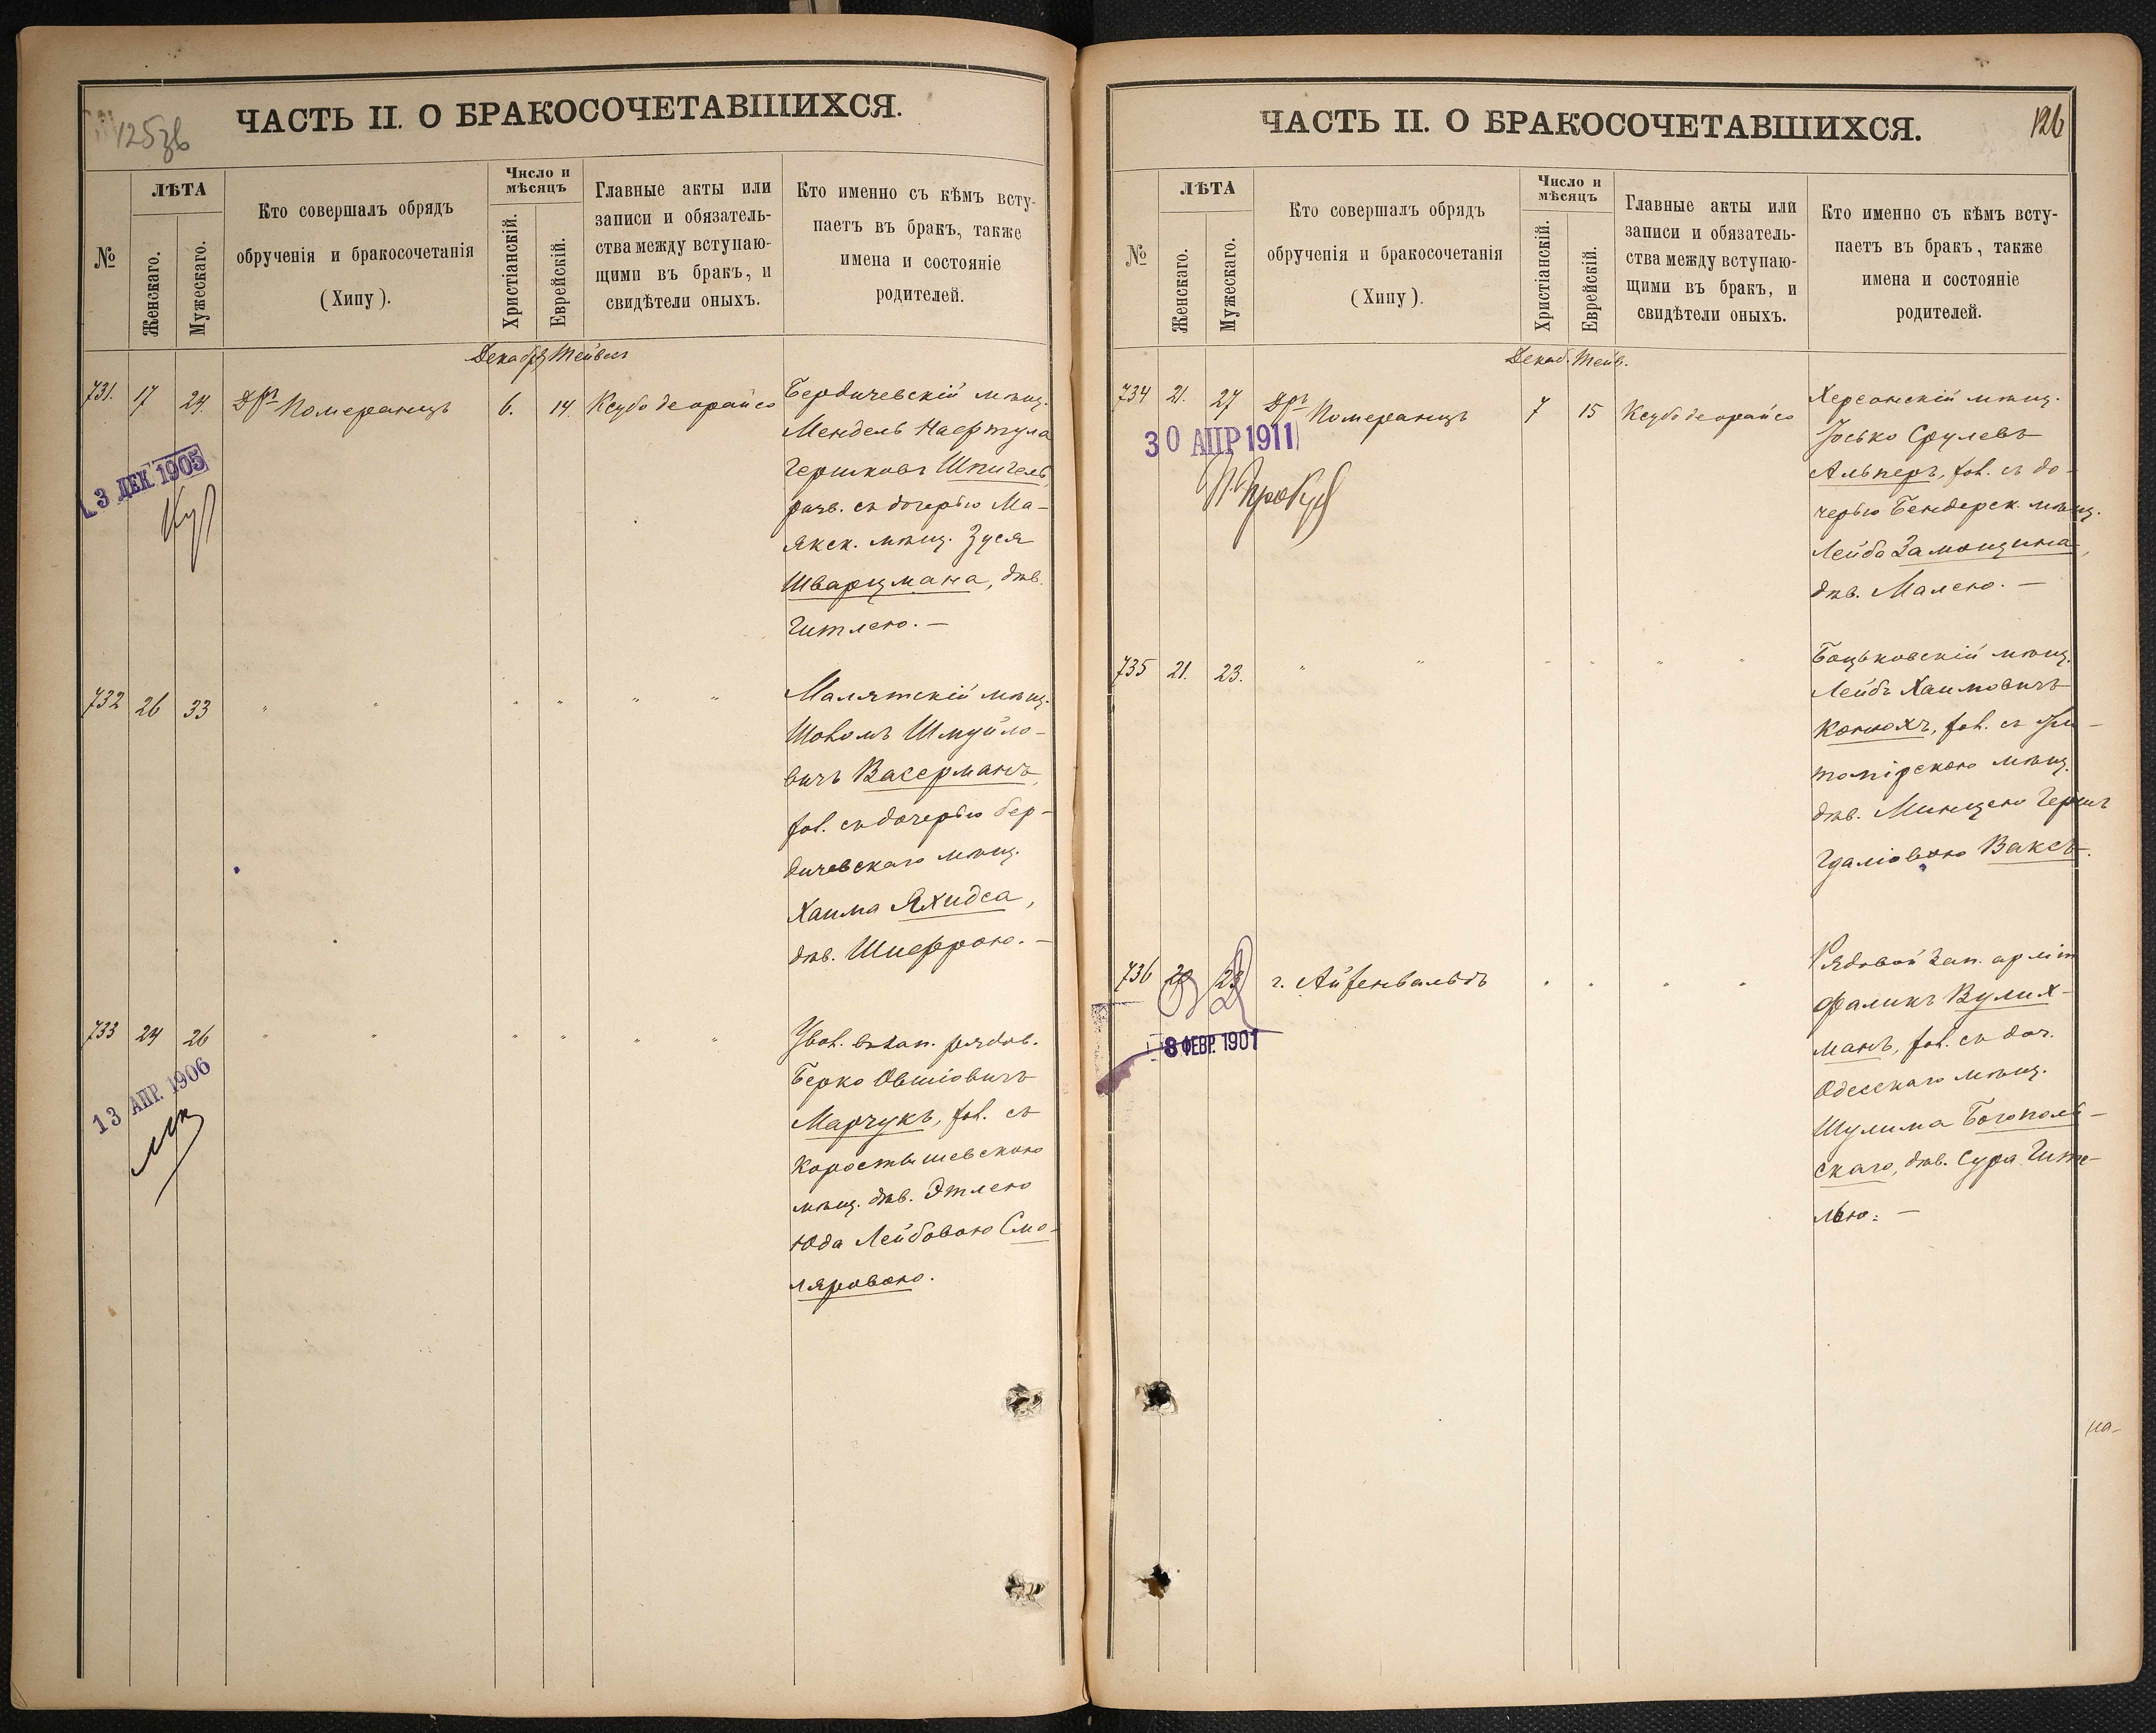 125 зв
ЧАСТЬ II. О БРАКОСОЧЕТАВШИХСЯ.
№
ЛѢТА
Женскаго.
Мужескаго.
Кто совершалъ обрядъ
обрученія и бракосочетанія
(Хипу).
Число и
мѣсяцъ
Христіанскій.
Еврейскій.
Главные акты или
записи и обязатель-
ства между вступаю-
щими въ бракъ, и
свидѣтели оныхъ.
Кто именно съ кѣмъ всту-
паетъ въ бракъ, также
имена и состояніе
родителей.
Декабрь Тейвесъ
731. 17 24. Дръ Померанцъ 6. 14. Ксубо деорайсо
Бердичевскій мѣщ.
Мендель Нафтула
Гершковъ Шпигель,
разв. съ дочерью Ма-
якск. мѣщ. Зуся
Шварцмана, дѣв.
Гитлею. —
3 ДЕК. 1905
732 26 33 " " " " " "
Малятскій мѣщ.
Шоломъ Шмуйло-
вичъ Васерманъ,
хол. съ дочерью бер-
дичевскаго мѣщ.
Хаима Яхидса,
дѣв. Шифрою. —
733 24 26 " " " " " "
Увол. въ зап. рядов.
Берко Овшіовичъ
Марчукъ, хол. съ
Коростышевскою
мѣщ. дѣв. Этлею
Юда Лейбовою Смо-
ляровою.
13 АПР. 1906
126
ЧАСТЬ II. О БРАКОСОЧЕТАВШИХСЯ.
№
ЛѢТА
Женскаго.
Мужескаго.
Кто совершалъ обрядъ
обрученія и бракосочетанія
(Хипу).
Число и
мѣсяцъ
Христіанскій.
Еврейскій.
Главные акты или
записи и обязатель-
ства между вступаю-
щими въ бракъ, и
свидѣтели оныхъ.
Кто именно съ кѣмъ всту-
паетъ въ бракъ, также
имена и состояніе
родителей.
Декаб. Тейв.
734 21. 27 Дръ Померанцъ 7 15 Ксубо деорайсо
Херсонскій мѣщ.
Іосько Срулевъ
Альперъ, хол. съ до-
черью Бендерск. мѣщ.
Лейба Замощина,
дѣв. Малею. —
30 АПР 1911
735 21. 23. " " " " " "
Боцьковскій мѣщ.
Лейбъ Хаимовичъ
Конюхъ, хол. съ Жи-
томірскою мѣщ.
дѣв. Минцею Гершъ
Гдаліовою Ваксъ.
736 20 23 г. Айзенвальдъ " " " "
Рядовой зап. арміи
Фаликъ Вулих-
манъ, хол. съ доч.
Одесскаго мѣщ.
Шулима Богополь-
скаго, дѣв. Сура Гите-
лью. —
8 ФЕВР. 1901
на-